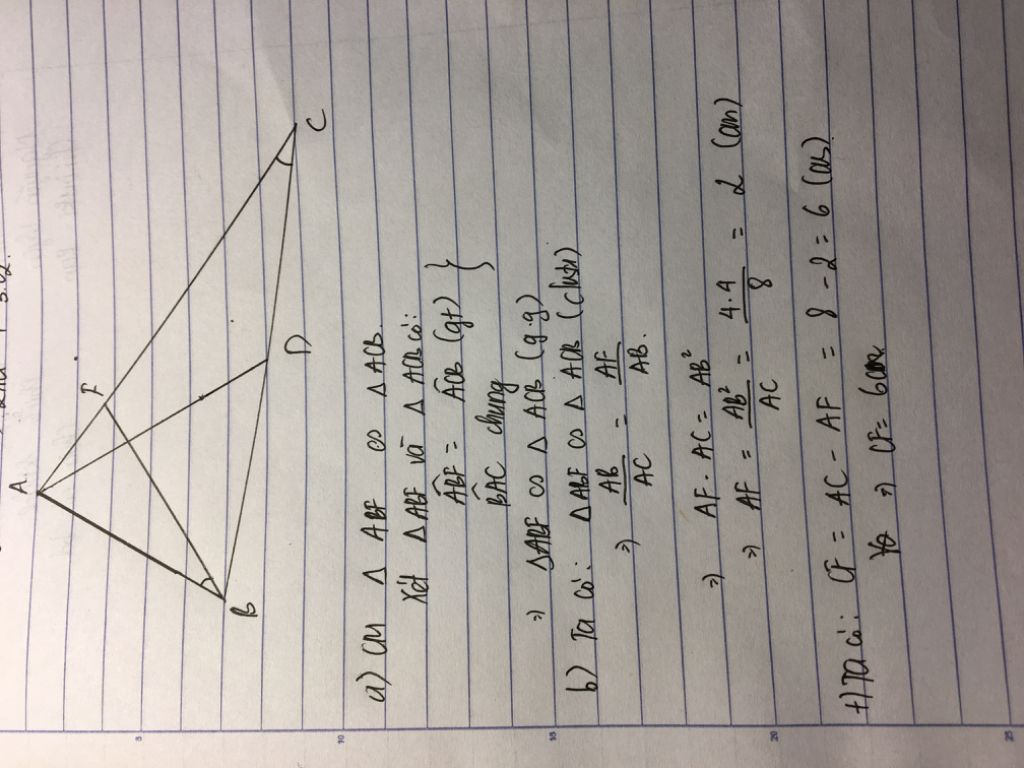 A
F
B
D
C
a) CM Δ ABF ∽ Δ ACB.
Xét Δ ABF và Δ ACB có:
ABF = ACB (gt)
BAC chung
=) ΔABF ∽ Δ ACB (g.g)
b) Ta có: Δ ABF ∽ Δ ACB (cmt)
=) AB/AC = AF/AB.
=) AF . AC = AB²
=) AF = AB²/AC = 4.4/8 = 2 (cm)
+) Ta có: CF = AC - AF = 8 - 2 = 6 (cm).
=) CF = 6cm
5
10
15
20
25